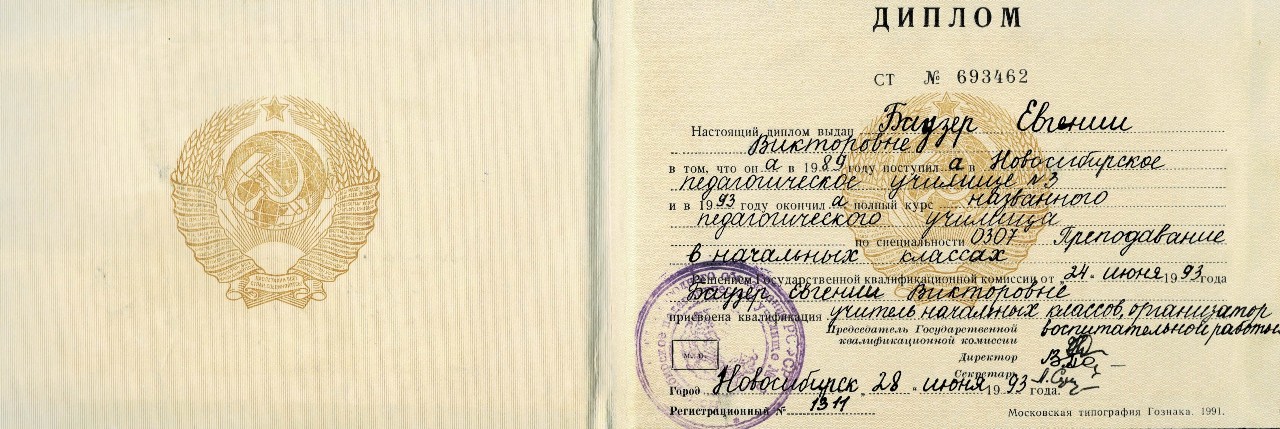 ДИПЛОМ
СТ № 693462
Настоящий диплом выдан Баузер Евгении
Викторовне
в том, что он а в 1989 году поступил а в Новосибирское
педагогическое училище №3
и в 1993 году окончил а полный курс названного
педагогического училища
по специальности 0307 Преподавание
в начальных классах
Решением Государственной квалификационной комиссии от „24 " июня 1993 года
Баузер Евгении Викторовне
присвоена квалификация учитель начальных классов, организатор
воспитательной работы
Председатель Государственной
квалификационной комиссии
Директор
Секретарь
М. П.
Город Новосибирск, 28 " июня 1993 года.
Регистрационный № 1311
Московская типография Гознака. 1991.